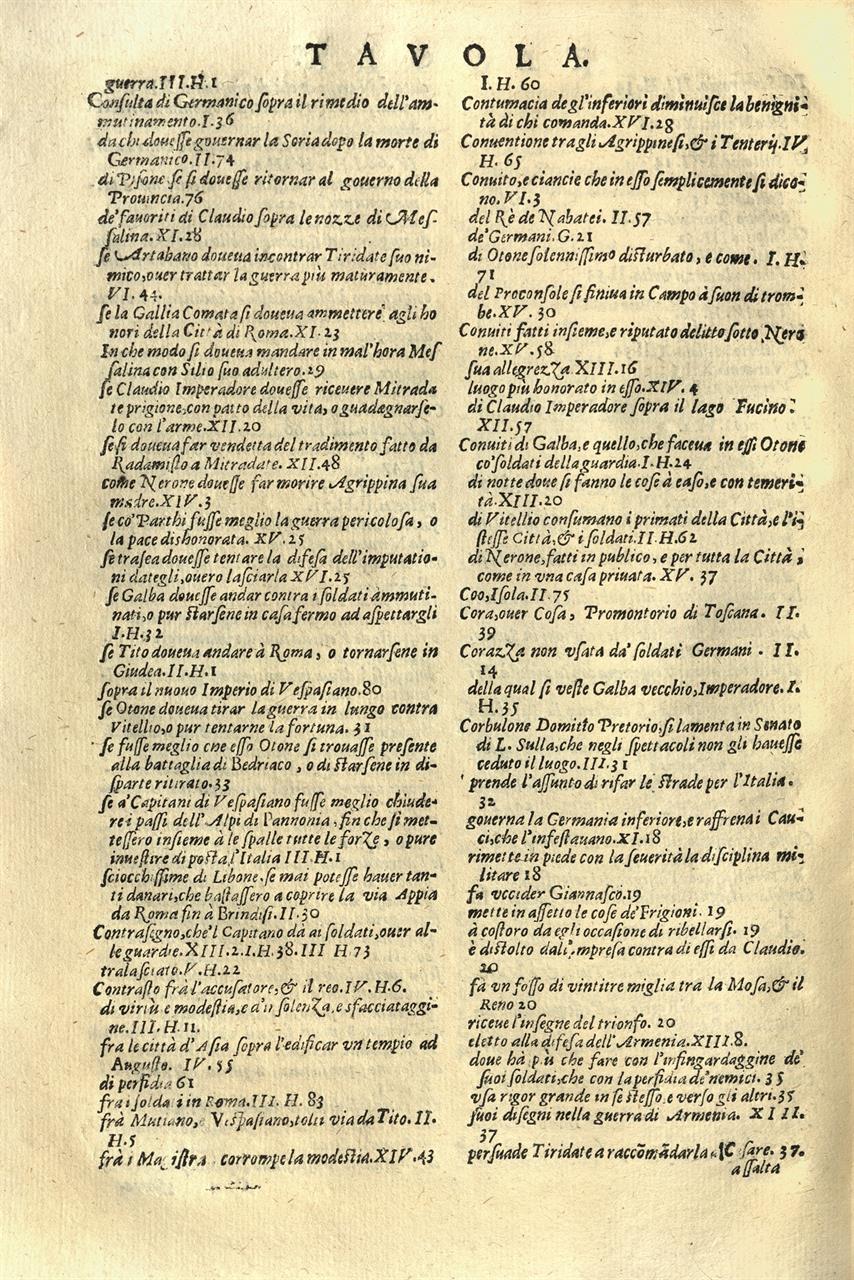 TAVOLA.
guerra.III.H.1
Conſulta di Germanico ſopra il rimedio dell'am-
mutinamento.I.36
da chi doueſſe gouernar la Soria dopo la morte di
Germanico.II.74
di Piſone ſe ſi doueſſe ritornar al gouerno della
Prouincia.76
de'fauoriti di Claudio ſopra le nozze di Meſ-
ſalina.XI.28
ſe Artabano doueua incontrar Tiridate ſuo ni-
mico,ouer trattar la guerra più maturamente.
VI.44.
ſe la Gallia Comata ſi doueua ammettere agli ho
nori della Città di Roma.XI.23
In che modo ſi doueua mandare in mal'hora Meſ
ſalina con Silio ſuo adultero.29
ſe Claudio Imperadore doueſſe riceuere Mitrada
te prigione,con patto della vita, o guadagnarſe-
lo con l'arme.XII.20
ſe ſi doueua far vendetta del tradimento fatto da
Radamiſto a Mitradate. XII.48
come Nerone doueſſe far morire Agrippina ſua
madre.XIV.3
ſe co'Parthi fuſſe meglio la guerra pericoloſa, o
la pace dishonorata. XV.25
ſe traſea doueſſe tentare la difeſa dell'imputatio-
ni dategli,ouero laſciarla XVI.25
ſe Galba doueſſe andar contra i ſoldati àmmuti-
nati,o pur ſtarſene in caſa fermo ad aſpettargli
I.H.32
ſe Tito doueua andare à Roma, o tornarſene in
Giudea.II.H.1
ſopra il nuouo Imperio di Veſpaſiano.80
ſe Otone doueua tirar la guerra in lungo contra
Vitellio,o pur tentarne la fortuna. 31
ſe fuſſe meglio che eſſo Otone ſi trouaſſe preſente
alla battaglia di Bedriaco, o di ſtarſene in di-
ſparte ritirato.33
ſe a'Capitani di Veſpaſiano fuſſe meglio chiude-
re i paſſi dell'Alpi di Pannonia, fin che ſi met-
teſſero inſieme à le ſpalle tutte le forze, o pure
inueſtire di poſta l'Italia III.H.1
ſciocchiſſime di Libone,ſe mai poteſſe hauer tan-
ti danari,che baſtaſſero a coprire la via Appia
da Roma fin à Brindiſi.II.30
Contraſegno,che'l Capitano dà ai ſoldati,ouer al-
le guardie.XIII.2.I.H.38.III H 73
tralaſciato.V.H.22
Contraſto frà l'accuſatore,& il reo.IV.H.6.
di virtù e modeſtia,e d'inſolenza,e sfacciataggi-
ne.III.H.11.
fra le città d'Aſia ſopra l'edificar vn tempio ad
Auguſto. IV.55
di perfidia 61
fra i ſoldati in Roma.III. H. 83
frà Mutiano,e Veſpaſiano,tolti via da Tito. II.
H.5
frà i Magiſtra corrompe la modeſtia.XIV.43
I. H. 60
Contumacia degl'inferiori diminuiſce la benigni-
tà di chi comanda.XVI.28
Conuentione tra gli Agrippineſi,& i Tenterij.IV.
H. 65
Conuito,e ciancie che in eſſo ſemplicemente ſi dico-
no.VI.3
del Rè de Nabatei. II.57
de'Germani.G.21
di Otone ſolenniſſimo diſturbato, e come. I.H.
71
del Proconſole ſi finiua in Campo à ſuon di trom-
be.XV. 30
Conuiti fatti inſieme,e riputato delitto ſotto Nero
ne.XV.58
ſua allegrezza XIII.16
luogo più honorato in eſſo.XIV. 4
di Claudio Imperadore ſopra il lago Fucino.
XII.57
Conuiti di Galba,e quello,che faceua in eſſi Otone
co'ſoldati della guardia.I.H.24
di notte doue ſi fanno le coſe à caſo,e con temeri-
tà.XIII.20
di Vitellio conſumano i primati della Città,e l'i-
ſteſſe Città,& i ſoldati.II.H.62
di Nerone,fatti in publico, e per tutta la Città,
come in vna caſa priuata. XV. 37
Coo,Iſola.II.75
Cora,ouer Coſa, Promontorio di Toſcana. II.
39
Corazza non vſata da'ſoldati Germani. II.
14
della qual ſi veſte Galba vecchio,Imperadore.I.
H.35
Corbulone Domitio Pretorio,ſi lamenta in Senato
di L. Sulla,che negli ſpettacoli non gli haueſſe
ceduto il luogo.III.31
prende l'aſſunto di rifar le ſtrade per l'Italia.
32
gouerna la Germania inferiore,e raffrena i Cau-
ci,che l'infeſtauano.XI.18
rimette in piede con la ſeuerità la diſciplina mi-
litare 18
fa vccider Giannaſco.19
mette in aſſetto le coſe de'Frigioni. 19
à coſtoro da egli occaſione di ribellarſi. 19
è diſtolto dall'impreſa contra di eſſi da Claudio.
20
fà vn foſſo di vintitre miglia tra la Moſa,& il
Reno 20
riceue l'inſegne del trionfo. 20
eletto alla difeſa dell'Armenia.XIII.8.
doue hà più che fare con l'infingardaggine de'
ſuoi ſoldati,che con la perfidia de'nemici. 35
vſa rigor grande in ſe ſteſſo,e verſo gli altri.35
ſuoi diſegni nella guerra di Armenia. XIII.
37
perſuade Tiridate a raccōmādarla a Ceſare. 37.
aſſalta